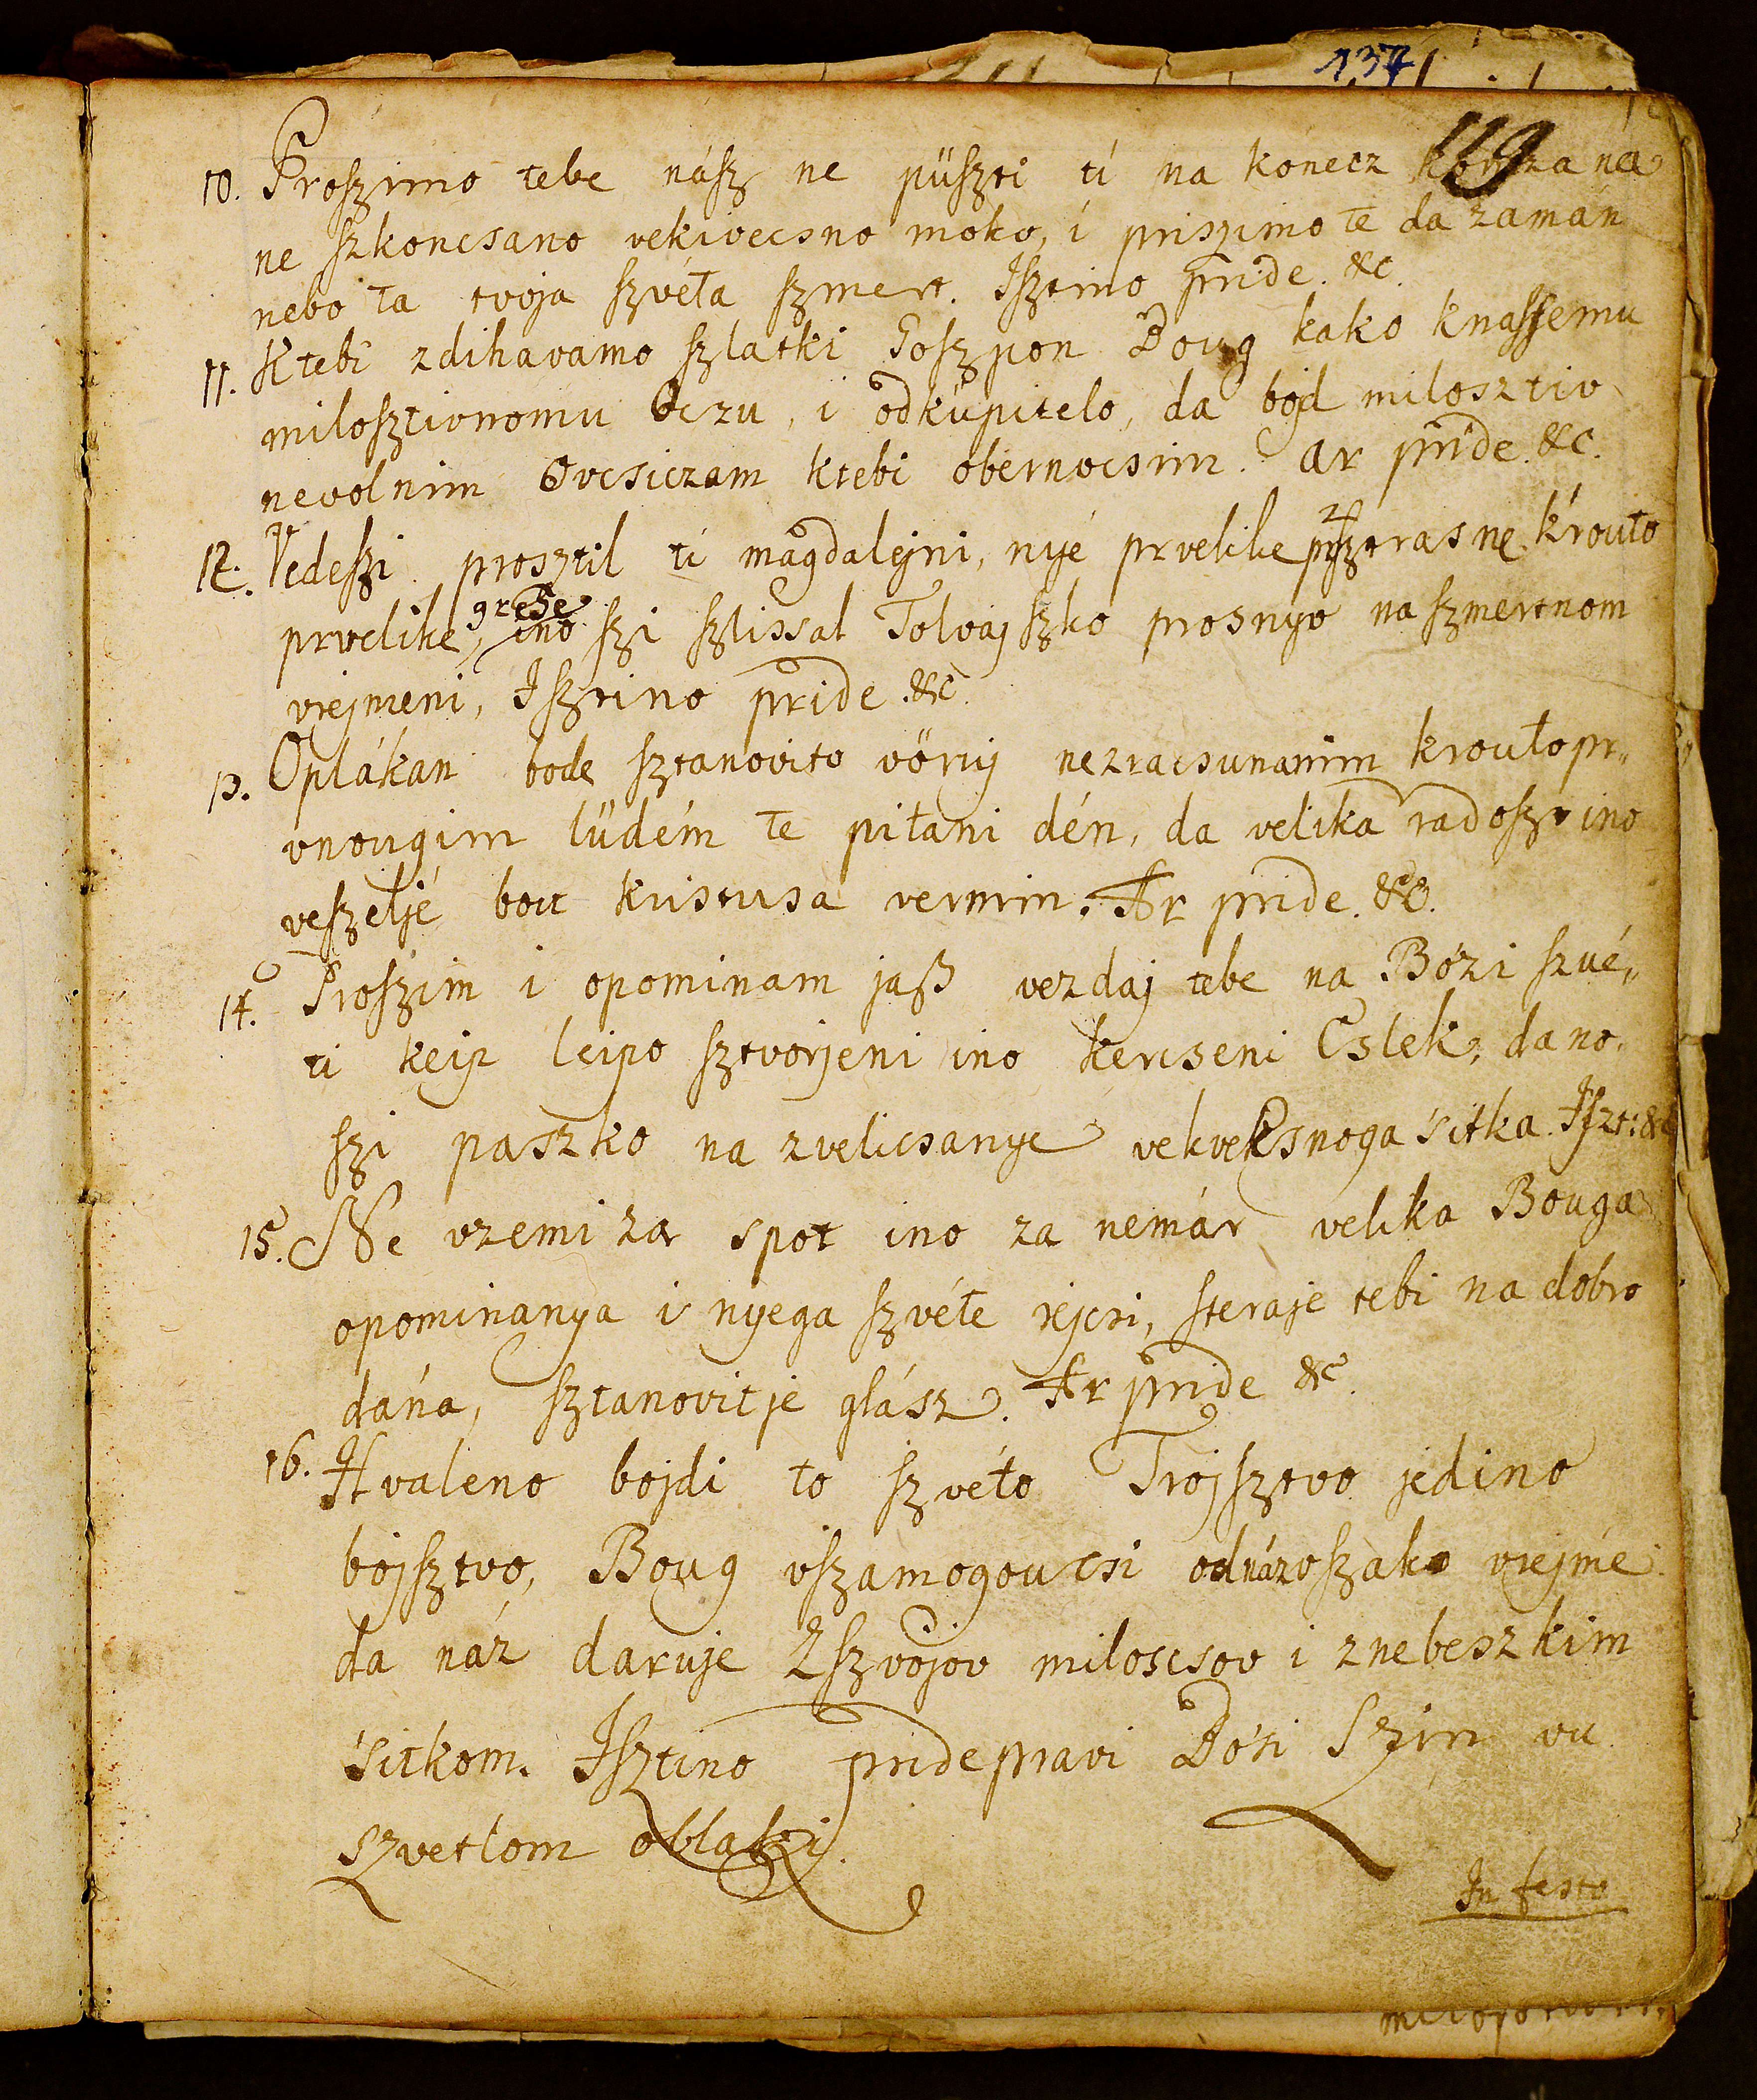 137
119
10. Proszimo tebe nász ne püszti ti na konecz
ne szkoncsano vekivecsno moko, i priszimo te da zamán
nebo ta tvoja szvéta szmert. Isztino pride. &c.
11. K tebi zdihavamo szlatki Goszpon Boug kako knassemu
milosztivnomu Oczu, i odküpitelo, da bojd milosztiv
nevolnim Ovcsiczam ktebi obernocsim. Ar pride. &c.
12. Vedeszi prosztil ti magdalejni, nyé prvelike sztrasne krouto
grehe
prvelike, ino szi szlissal Tolvajszko prosnyo na szmertnom
vrejmeni, Isztino pride &c.
13. Oplákan bode sztanovito vörij nezracsunanim kroutopr„
vnougim lüdém te pitani dén, da velika radoszt ino
veszeljé bou kristusa vernim. Ar pride. &c.
14. Proszim i opominam jaß vezdaj tebe na Bózi szvé„
ti kejp lejpo sztvorjeni ino kercseni Cslek, da no„
szi paszko na zvelicsanye vekvecsnoga sitka. Iszt: &c
15. Ne vzemi za spot ino za nemár velika Bouga
opominanya i nyega szvéte rejcsi, steraje tebi na dobro
dána, sztanovitje glász. Ar pride &c.
16. Hvaleno bojdi to szvéto Trojsztvo jedino
bojsztvo, Boug vszamogoucsi odnázvszako vrejme
da náz daruje Zszvojov miloscsov i znebeszkim
sitkom. Isztino pridepravi Bósi Szin vu
szvetlom oblaki.
In festo